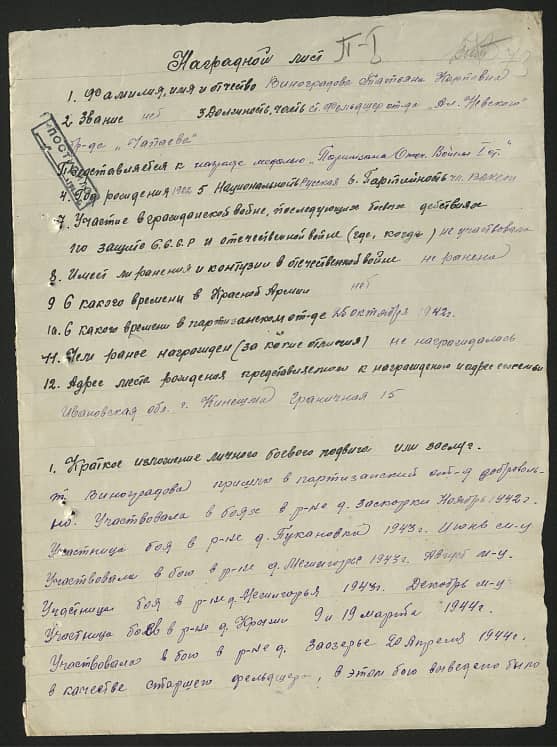 Наградной лист П-I
1. Фамилия, имя и отчество Виноградова Татьяна Карповна
2. Звание нет 3 Должность, часть ст. фельдшер от-да „Ал. Невского"
бр-да „Чапаева"
Представляется к награде медалью „Партизана Отеч. Войны I ст."
4. Год рождения 1922 5 Национальность русская 6. Партийность чл. ВЛКСМ
7. Участие в гражданской войне, последующих боевых действиях
по защите С.С.С.Р и отечественной войне (где, когда) не участвовала
8. Имеет ли ранения и контузии в отечественной войне не ранена
9 С какого времени в Красной Армии нет
10. С какого времени в партизанском от-де 25 октября 1942г.
11. Чем ранее награжден (за какие отличия) не награждалась
12. Адрес места рождения представляемого к награждению и адрес семьи
Ивановская обл. г. Кинешма Граничная 15
1. Краткое изложение личного боевого подвига или заслуг.
т. Виноградова пришла в партизанский от-д доброволь-
но. Участвовала в боях в р-не д. Заскорки Ноябрь 1942г.
Участница боя в р-не д. Пукановка 1943г. Июнь м-ц
Участвовала в бою в р-не д. 1943г. Август м-ц.
Участница боя в р-не д. 1943г. Декабрь м-ц
Участница боёв в р-не д. 9 и 19 марта 1944г.
Участвовала в бою в р-не д. Заозерье 20 Апреля 1944г.
в качестве старшего фельдшера, в этом бою выведено было